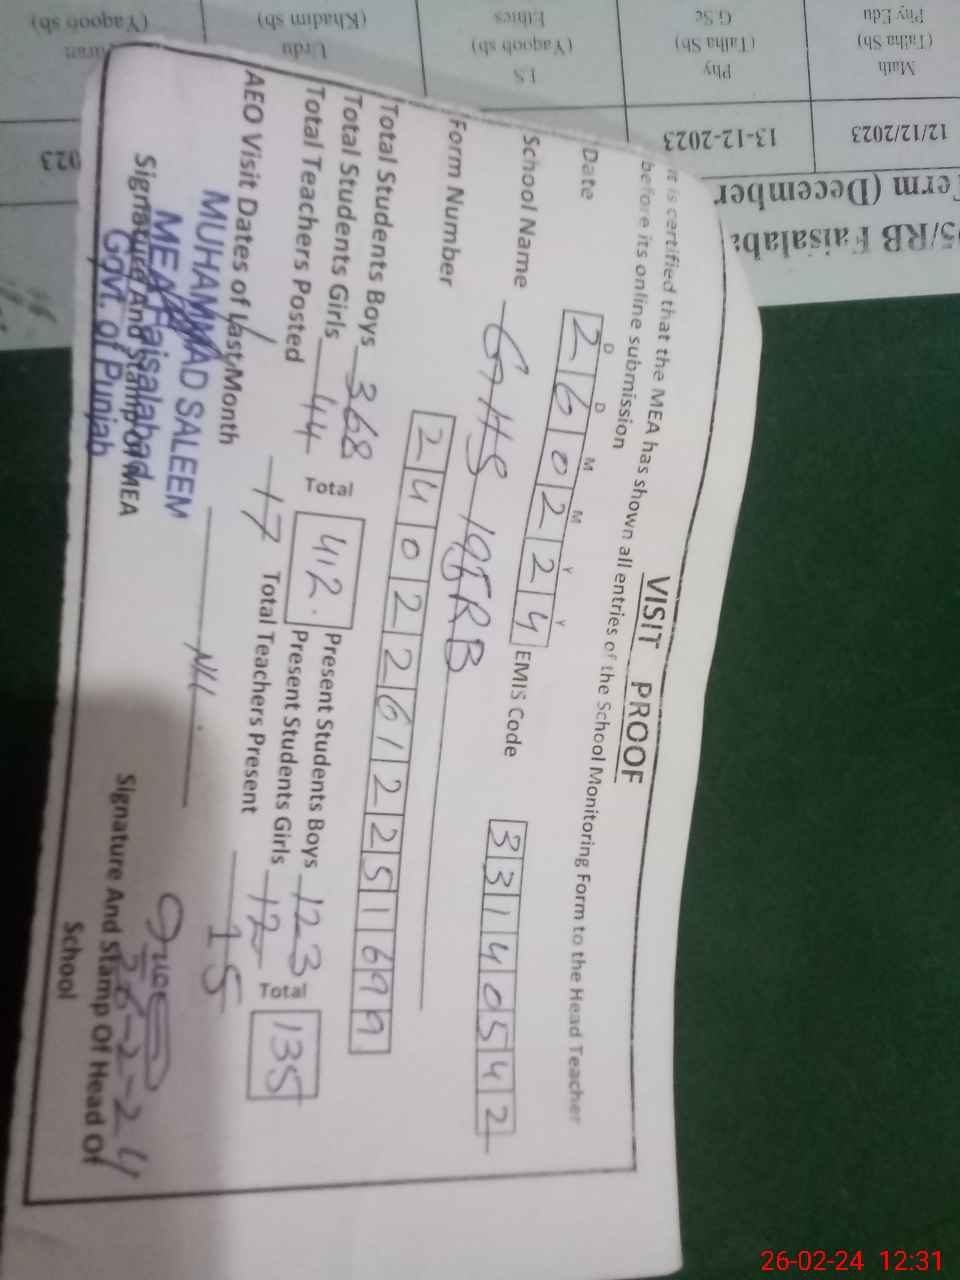 VISIT PROOF
It is certified that the MEA has shown all entries of the School Monitoring Form to the Head Teacher
before its online submission
D D M M Y Y
Date 260224 EMIS Code 33140542
School Name GHS 195RB
Form Number 24022612251699
Total Students Boys 368 Present Students Boys 123
Total Students Girls 44 Total 412. Present Students Girls 12 Total 135
Total Teachers Posted 17 Total Teachers Present 15
AEO Visit Dates of Last Month Nil.
MUHAMMAD SALEEM
MEA Faisalabad
Govt. of Punjab
Signature And Stamp Of MEA
26-2-24
Signature And Stamp Of Head Of
School
5/RB Faisalaba
Term (December
12/12/2023 13-12-2023 023
Math Phy I.S Urdu
(Talha Sb) (Talha Sb) (Yaqoob sb) (Khadim sb) (Yaqoob sb)
Phy Edu G Sc Ethics
26-02-24 12:31